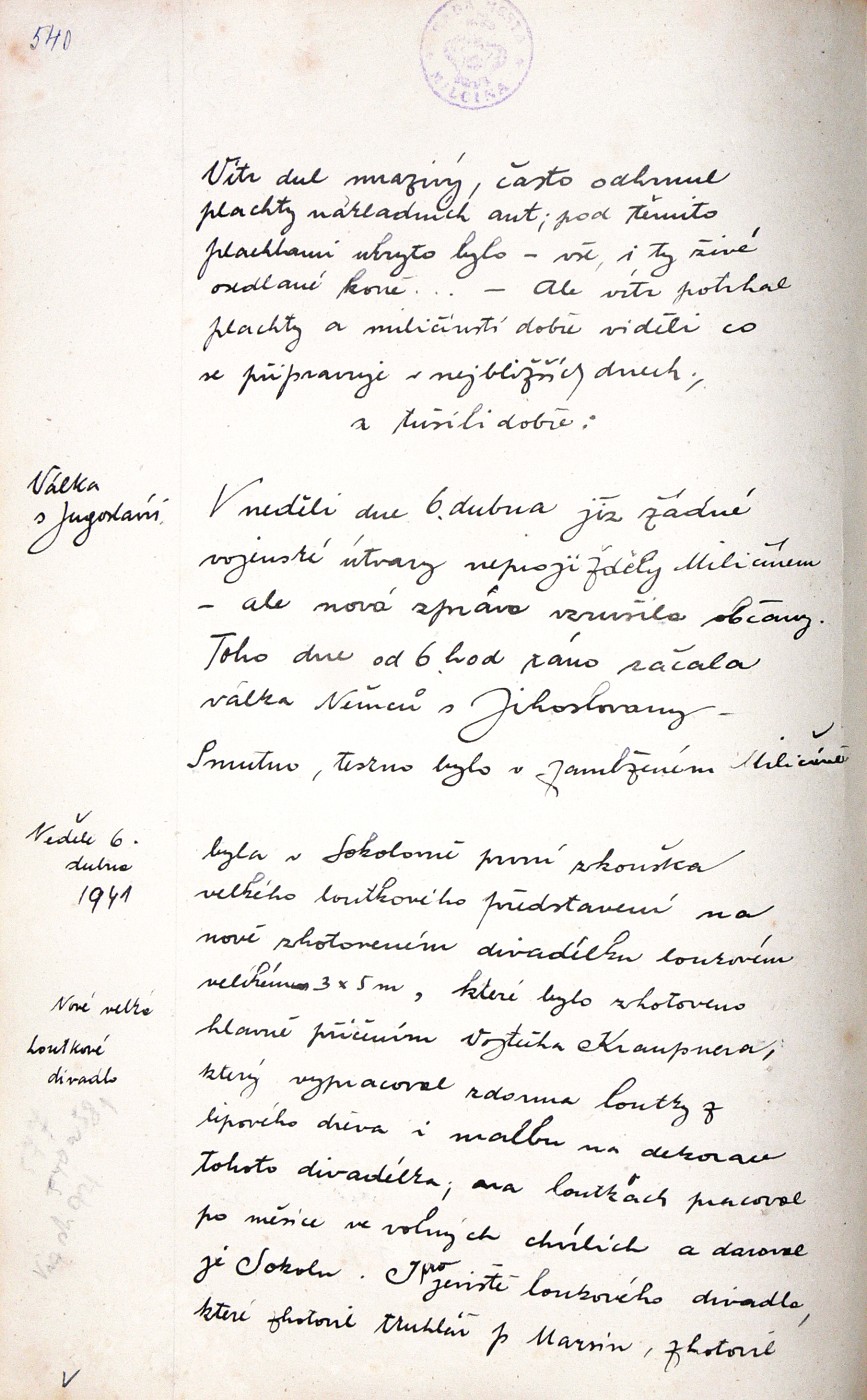 540
RADA MĚSTA
MILČÍNA
Vítr dul mrazivý, často odhrnul
plachty nákladních aut; pod těmito
plachtami ukryto bylo – vše, i ty živé
osedlané koně... – Ale vítr potrhal
plachty a miličínstí dobře viděli co
se připravuje v nejbližších dnech;
a tušili dobře:
Válka
s Jugoslavií.
V neděli dne 6. dubna již žádné
vojenské útvary neprojížděly Miličínem
– ale nová zpráva vzrušila občany.
Toho dne od 6 hod ráno začala
válka Němců s Jihoslovany –
Smutno, teskno bylo v zamlženém Miličíně
Neděle 6.
dubna
1941
byla v Sokolovně první zkouška
velkého loutkového představení na
nově zhotoveném divadélku loutkovém
velikém 3 x 5 m, které bylo zhotoveno
Nové velké
loutkové
divadlo
hlavně přičiněním Vojtěcha Kraupnera,
který vypracoval zdarma loutky z
lipového dřeva i malbu na dekorace
tohoto divadélka; na loutkách pracoval
po měsíce ve volných chvílích a daroval
je Sokolu. I pro jeviště loutkového divadla,
které zhotovil truhlář p Marsin, zhotovil
V